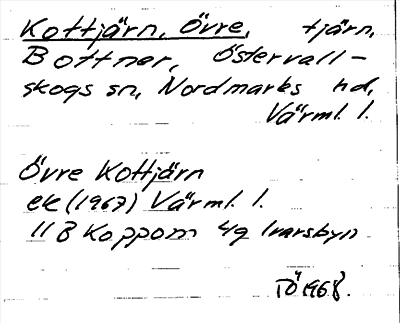 Kottjärn, Övre, tjärn,
Bottnar, Östervall-
skogs sn, Nordmarks hd,
Värml. l.
Övre Kottjärn
ek (1967) Värml. l.
11 B Koppom 4g Ivarsbyn
TÖ 1968.